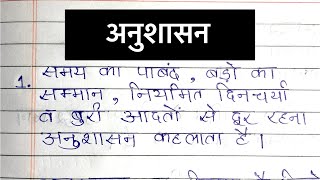 अनुशासन
1. समय का पाबंद, बड़ो का
सम्मान, नियमित दिनचर्या
व बुरी आदतों से दूर रहना
अनुशासन कहलाता है।